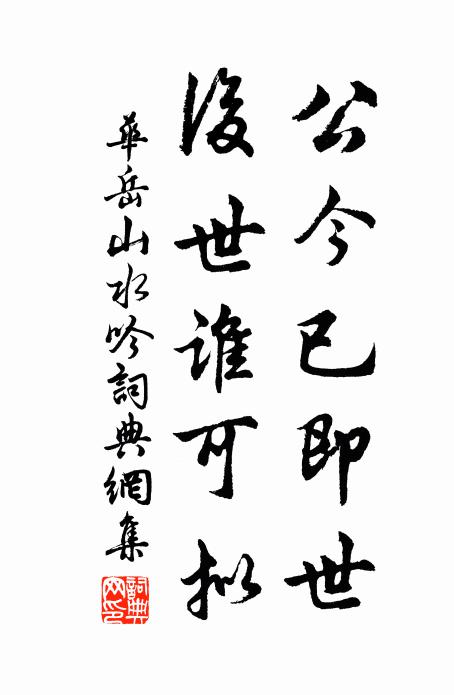 公今已即世
後世誰可擬
華岳山水吟詞典網集
詞典網印